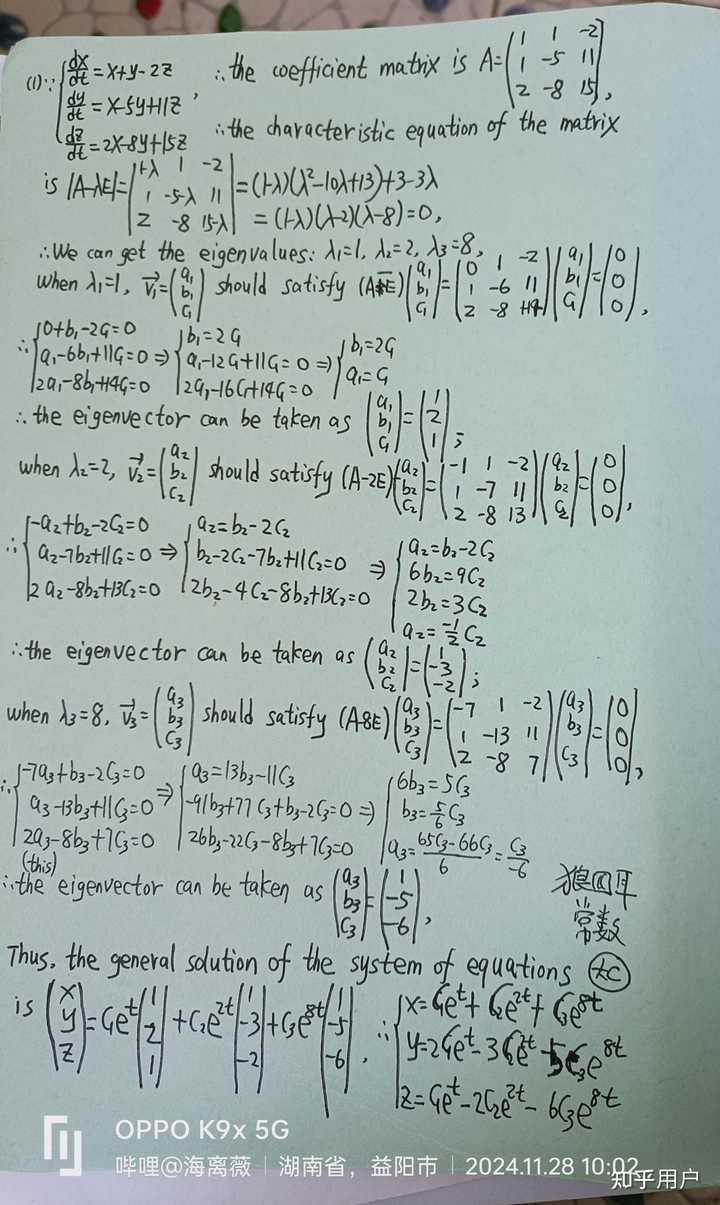 (1)∵ {dx/dt=x+y-2z, dy/dt=x-5y+11z, dz/dt=2x-8y+15z, ∴the coefficient matrix is A=(1 1 -2; 1 -5 11; 2 -8 15),
∴the characteristic equation of the matrix
is |A-λE|=|1-λ 1 -2; 1 -5-λ 11; 2 -8 15-λ|=(1-λ)(λ²-10λ+13)+3-3λ
=(1-λ)(λ-2)(λ-8)=0,
∴We can get the eigenvalues: λ₁=1, λ₂=2, λ₃=8,
when λ₁=1, v₁=(a₁; b₁; c₁) should satisfy (A-E)(a₁; b₁; c₁)=(0 1 -2; 1 -6 11; 2 -8 14)(a₁; b₁; c₁)=(0; 0; 0),
∴{0+b₁-2c₁=0, a₁-6b₁+11c₁=0, 2a₁-8b₁+14c₁=0 ⇒ {b₁=2c₁, a₁-12c₁+11c₁=0, 2a₁-16c₁+14c₁=0 ⇒ {b₁=2c₁, a₁=c₁
∴the eigenvector can be taken as (a₁; b₁; c₁)=(1; 2; 1);
when λ₂=2, v₂=(a₂; b₂; c₂) should satisfy (A-2E)(a₂; b₂; c₂)=(-1 1 -2; 1 -7 11; 2 -8 13)(a₂; b₂; c₂)=(0; 0; 0),
∴{-a₂+b₂-2c₂=0, a₂-7b₂+11c₂=0, 2a₂-8b₂+13c₂=0 ⇒ {a₂=b₂-2c₂, b₂-2c₂-7b₂+11c₂=0, 2b₂-4c₂-8b₂+13c₂=0 ⇒ {a₂=b₂-2c₂, 6b₂=9c₂, 2b₂=3c₂, a₂=-1/2 c₂
∴the eigenvector can be taken as (a₂; b₂; c₂)=(1; -3; -2);
when λ₃=8, v₃=(a₃; b₃; c₃) should satisfy (A-8E)(a₃; b₃; c₃)=(-7 1 -2; 1 -13 11; 2 -8 7)(a₃; b₃; c₃)=(0; 0; 0),
∴{-7a₃+b₃-2c₃=0, a₃-13b₃+11c₃=0, 2a₃-8b₃+7c₃=0 ⇒ {a₃=13b₃-11c₃, -91b₃+77c₃+b₃-2c₃=0, 26b₃-22c₃-8b₃+7c₃=0 ⇒ {6b₃=5c₃, b₃=5/6 c₃, a₃=(65c₃-66c₃)/6=c₃/-6
(this)
∴the eigenvector can be taken as (a₃; b₃; c₃)=(1; -5; -6),
常数
Thus, the general solution of the system of equations +C
is (x; y; z)=C₁eᵗ(1; 2; 1)+C₂e²ᵗ(1; -3; -2)+C₃e⁸ᵗ(1; -5; -6), ∴{x=C₁eᵗ+C₂e²ᵗ+C₃e⁸ᵗ, y=2C₁eᵗ-3C₂e²ᵗ-5C₃e⁸ᵗ, z=C₁eᵗ-2C₂e²ᵗ-6C₃e⁸ᵗ
OPPO K9x 5G
哔哩@海离薇 | 湖南省，益阳市 | 2024.11.28 10:02
知乎用户